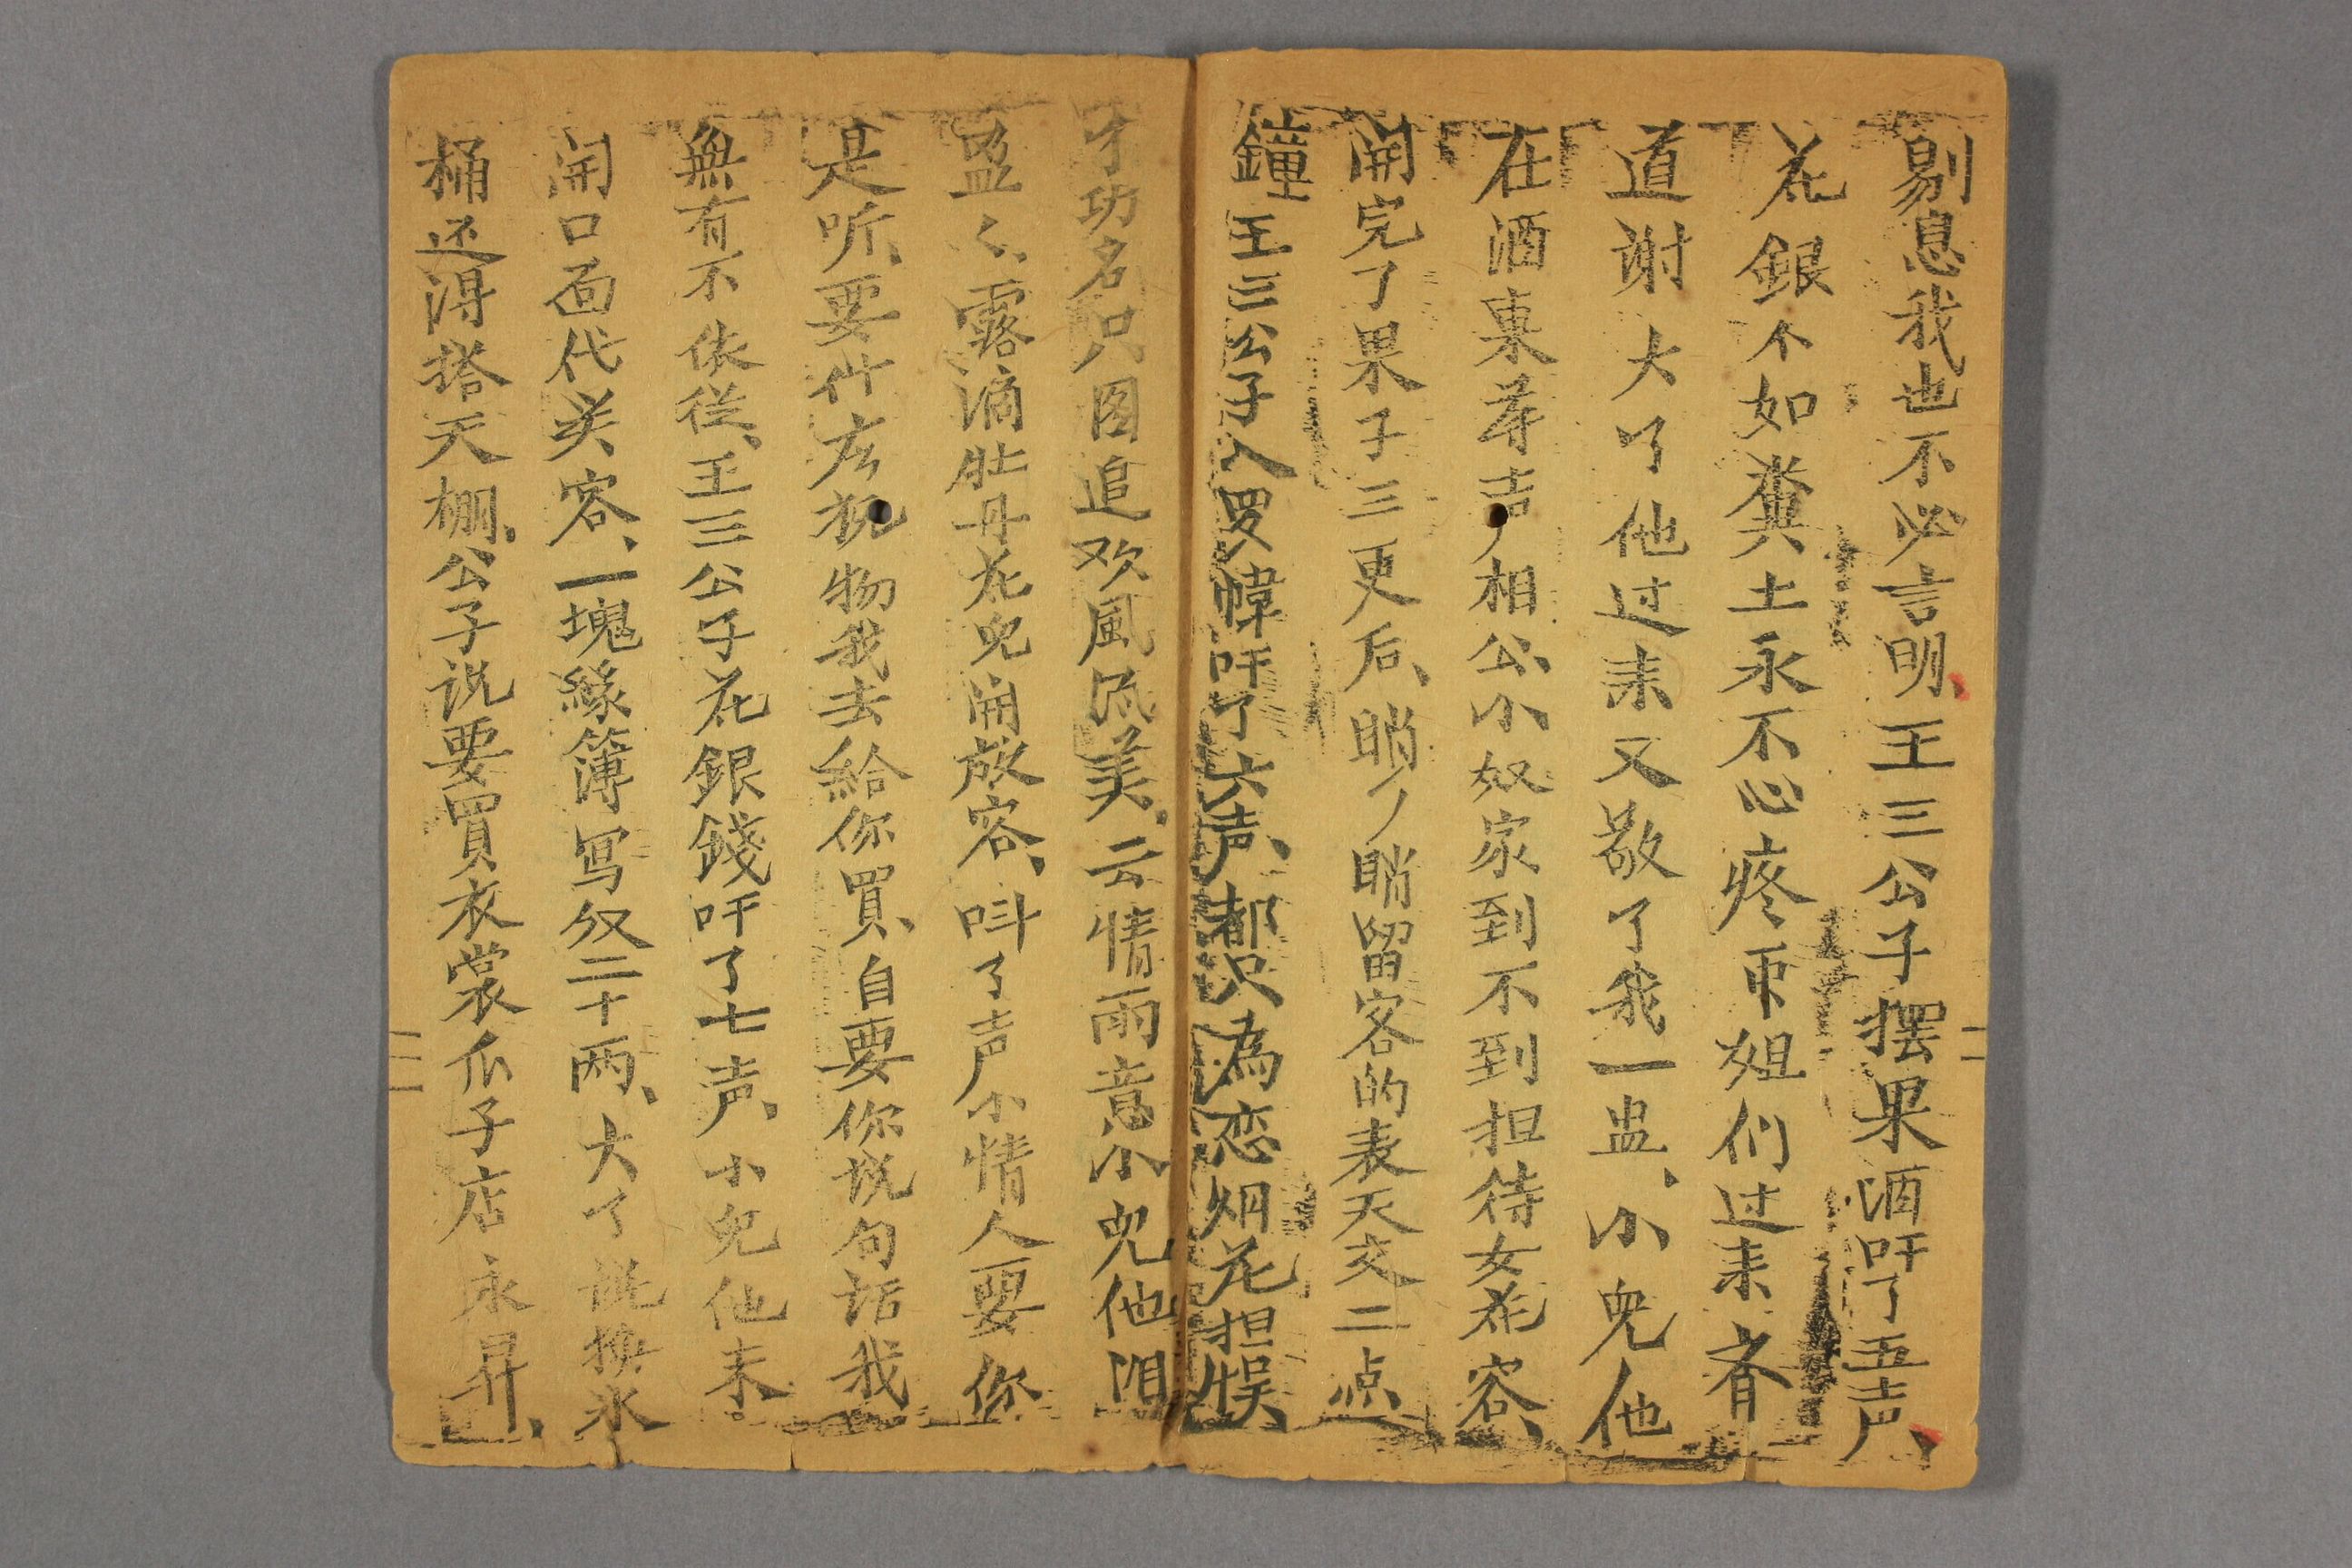 剔息我也不必言明、王三公子摆果酒吁了五声、
花銀不如糞土永不心疼帀姐们过耒斉
道谢大了他过耒又敬了我一盅、小児他
在酒東尋声相公、小奴家到不到担待女花容、
開完了果子三更后、眳ノ眳留客的表天交二点
鐘王三公子入罗幃吁了六声、都只為恋烟花担悮
了功名只图追欢風流美、云情雨意小児他泪
盈〻露滴牡丹花児開放容、呌了声小情人要您
是听、要什広物我去給你買、自要你说句話我
無有不依従、王三公子花銀錢吁了七声、小児他未
開口面代笑容、一塊緣簿写纹二十两、大了说换氷
桶还得搭天棚、公子说要買衣裳瓜子店永昇、